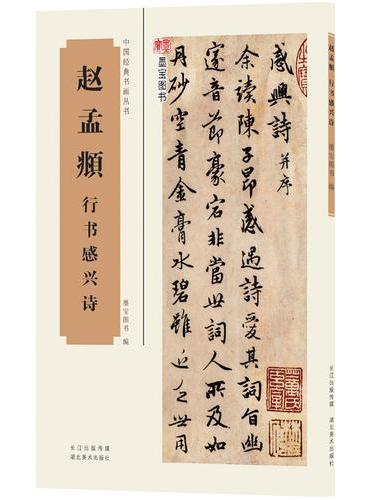 中国经典书画丛书
赵孟頫
行书感兴诗
墨宝图书 编
长江出版传媒
湖北美术出版社
墨宝图书
感興詩 并序
余續陳子昂感遇詩愛其詞旨幽
邃音節豪宕非當世詞人所及如
丹砂空青金膏水碧雖近乏世用
赵孟頫 行书感兴诗
墨宝图书 编
长江出版传媒
湖北美术出版社